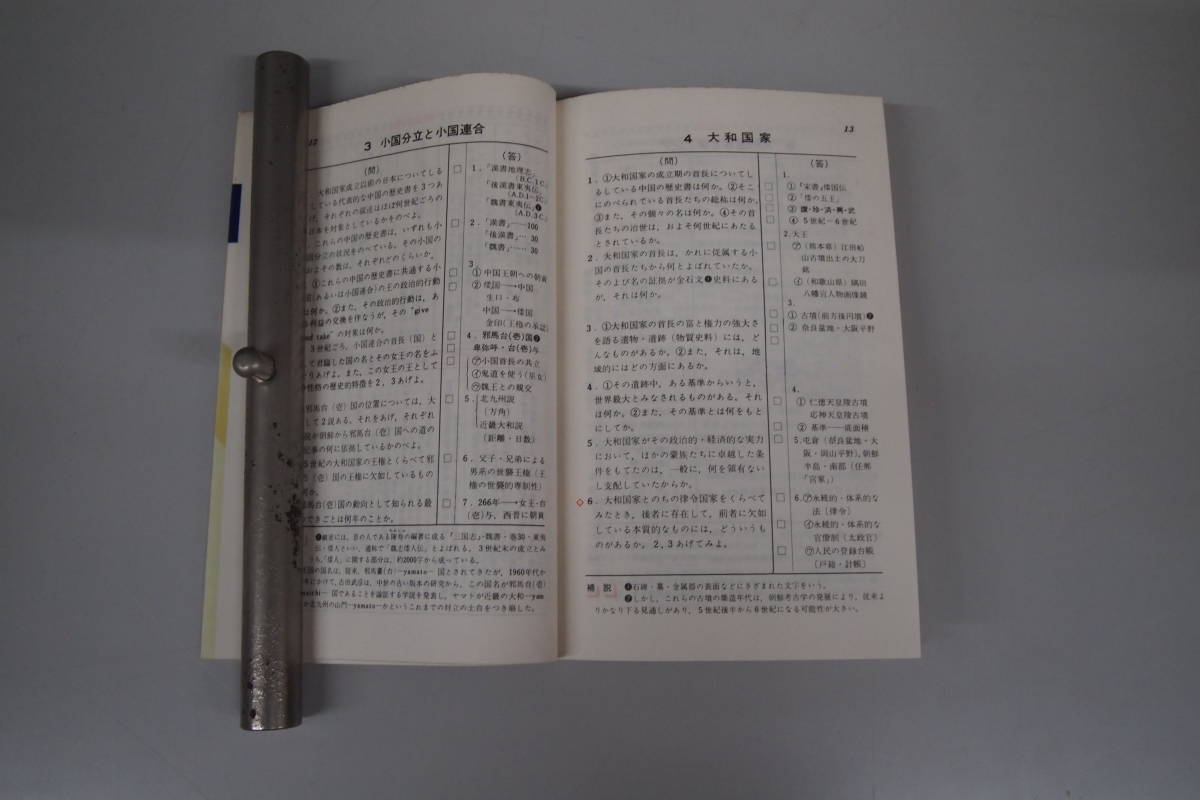 12
3 小国分立と小国連合
(問)
大和国家成立以前の日本についてしる
している代表的な中国の歴史書を3つあ
げ,それぞれの叙述はほぼ何世紀ごろの
日本を対象としているかをのべよ。
これらの中国の歴史書は,いずれも小
国分立の状況をのべている。その小国の
およその数は,それぞれどのくらいか。
①これらの中国の歴史書に共通する小
国(あるいは小国連合)の王の政治的行動
は何か。②また,その政治的行動は,あ
利益の交換を伴なうが,その"give
and take"の対象は何か。
3世紀ごろ,小国連合の首長(国)と
して君臨した国の名とその女王の名をふ
りあげよ。また,この女王の王として
の性格の歴史的特徴を2,3あげよ。
邪馬台(壱)国の位置については,大
して2説ある。それをあげ,それぞれ
説が朝鮮から邪馬台(壱)国への道の
記事の何に依拠しているかをのべよ。
5世紀の大和国家の王権とくらべて邪
(壱)国の王権に欠如しているもの
何か。
馬台(壱)国の動向として知られる最
できごとは何年のことか。
(答)
1.『漢書地理志』
(B.C.1C.)
『後漢書東夷伝』
(A.D.1~2C.)
『魏書東夷伝』❶
(A.D.3C.)
2.『漢書』…100
『後漢書』… 30
『魏書』…… 30
3.
① 中国王朝への朝貢
② 倭国→中国
生口・布
中国→倭国
金印(王権の承認)
4.邪馬台(壱)国❷
卑弥呼・台(壱)与
㋐小国首長の共立
㋑鬼道を使う(巫女)
㋒魏王との親交
5.北九州説
(方角)
近畿大和説
(距離・日数)
6.父子・兄弟による
男系の世襲王権(王
権の世襲的専制性)
7.266年→女王・台
(壱)与,西晋に朝貢
❶厳密には,晋の人である陳寿の編書に成る『三国志』・魏書・巻30・東夷
伝・倭人といい,通称で「魏志倭人伝」とよばれる。3世紀末の成立とみ
うち,「倭人」に関する部分は,約2000字から成っている。
国の国名は,従来,邪馬臺(台)—yamato—国とされてきたが,1960年代か
にかけて,古田武彦は,中世の古い版本の研究から,この国名が邪馬台(壱)
—国であることを論証する学説を発表し,ヤマトが近畿の大和—yam
か北九州の山門—yamato—かというこれまでの対立の土台をつき崩した。
13
4 大和国家
(問)
1.①大和国家の成立期の首長についてし
るしている中国の歴史書は何か。②そこ
にのべられている首長たちの総称は何か。
③また,その個々の名は何か。④その首
長たちの治世は,およそ何世紀にあたる
とされているか。
2.大和国家の首長は,かれに従属する小
国の首長たちから何とよばれていたか。
そのよび名の証拠が金石文❶史料にある
が,それは何か。
3.①大和国家の首長の富と権力の強大さ
を語る遺物・遺跡(物質史料)には,ど
んなものがあるか。②また,それは,地
域的にはどの方面にあるか。
4.①その遺跡中,ある基準からいうと,
世界最大とみなされるものがある。それ
は何か。②また,その基準とは何をもと
にしてか。
5.大和国家がその政治的・経済的な実力
において,ほかの豪族たちに卓越した条
件をもてたのは,一般に,何を領有ない
し支配していたからか。
6.大和国家とのちの律令国家をくらべて
みたとき,後者に存在して,前者に欠如
している本質的なものには,どういうも
のがあるか。2,3あげてみよ。
(答)
1.
①『宋書』倭国伝
②「倭の五王」
③ 讃・珍・済・興・武
④ 5世紀~6世紀
2.大王
㋐(熊本県)江田船
山古墳出土の大刀
銘
㋑(和歌山県)隅田
八幡宮人物画像鏡
3.
① 古墳(前方後円墳)❷
② 奈良盆地・大阪平野
4.
① 仁徳天皇陵古墳
応神天皇陵古墳
② 基準—底面積
5.屯倉(奈良盆地・大
阪・岡山平野),朝鮮
半島・南部(任那
「宮家」)
6.㋐永続的・体系的な
法〔律令〕
㋑永続的・体系的な
官僚制〔太政官〕
㋒人民の登録台帳
〔戸籍・計帳〕
補説
❶石碑・墓・金属器の表面などにきざまれた文字をいう。
❷しかし,これらの古墳の築造年代は,朝鮮考古学の発展により,従来よ
りかなり下る見通しがあり,5世紀後半から6世紀になる可能性が大きい。